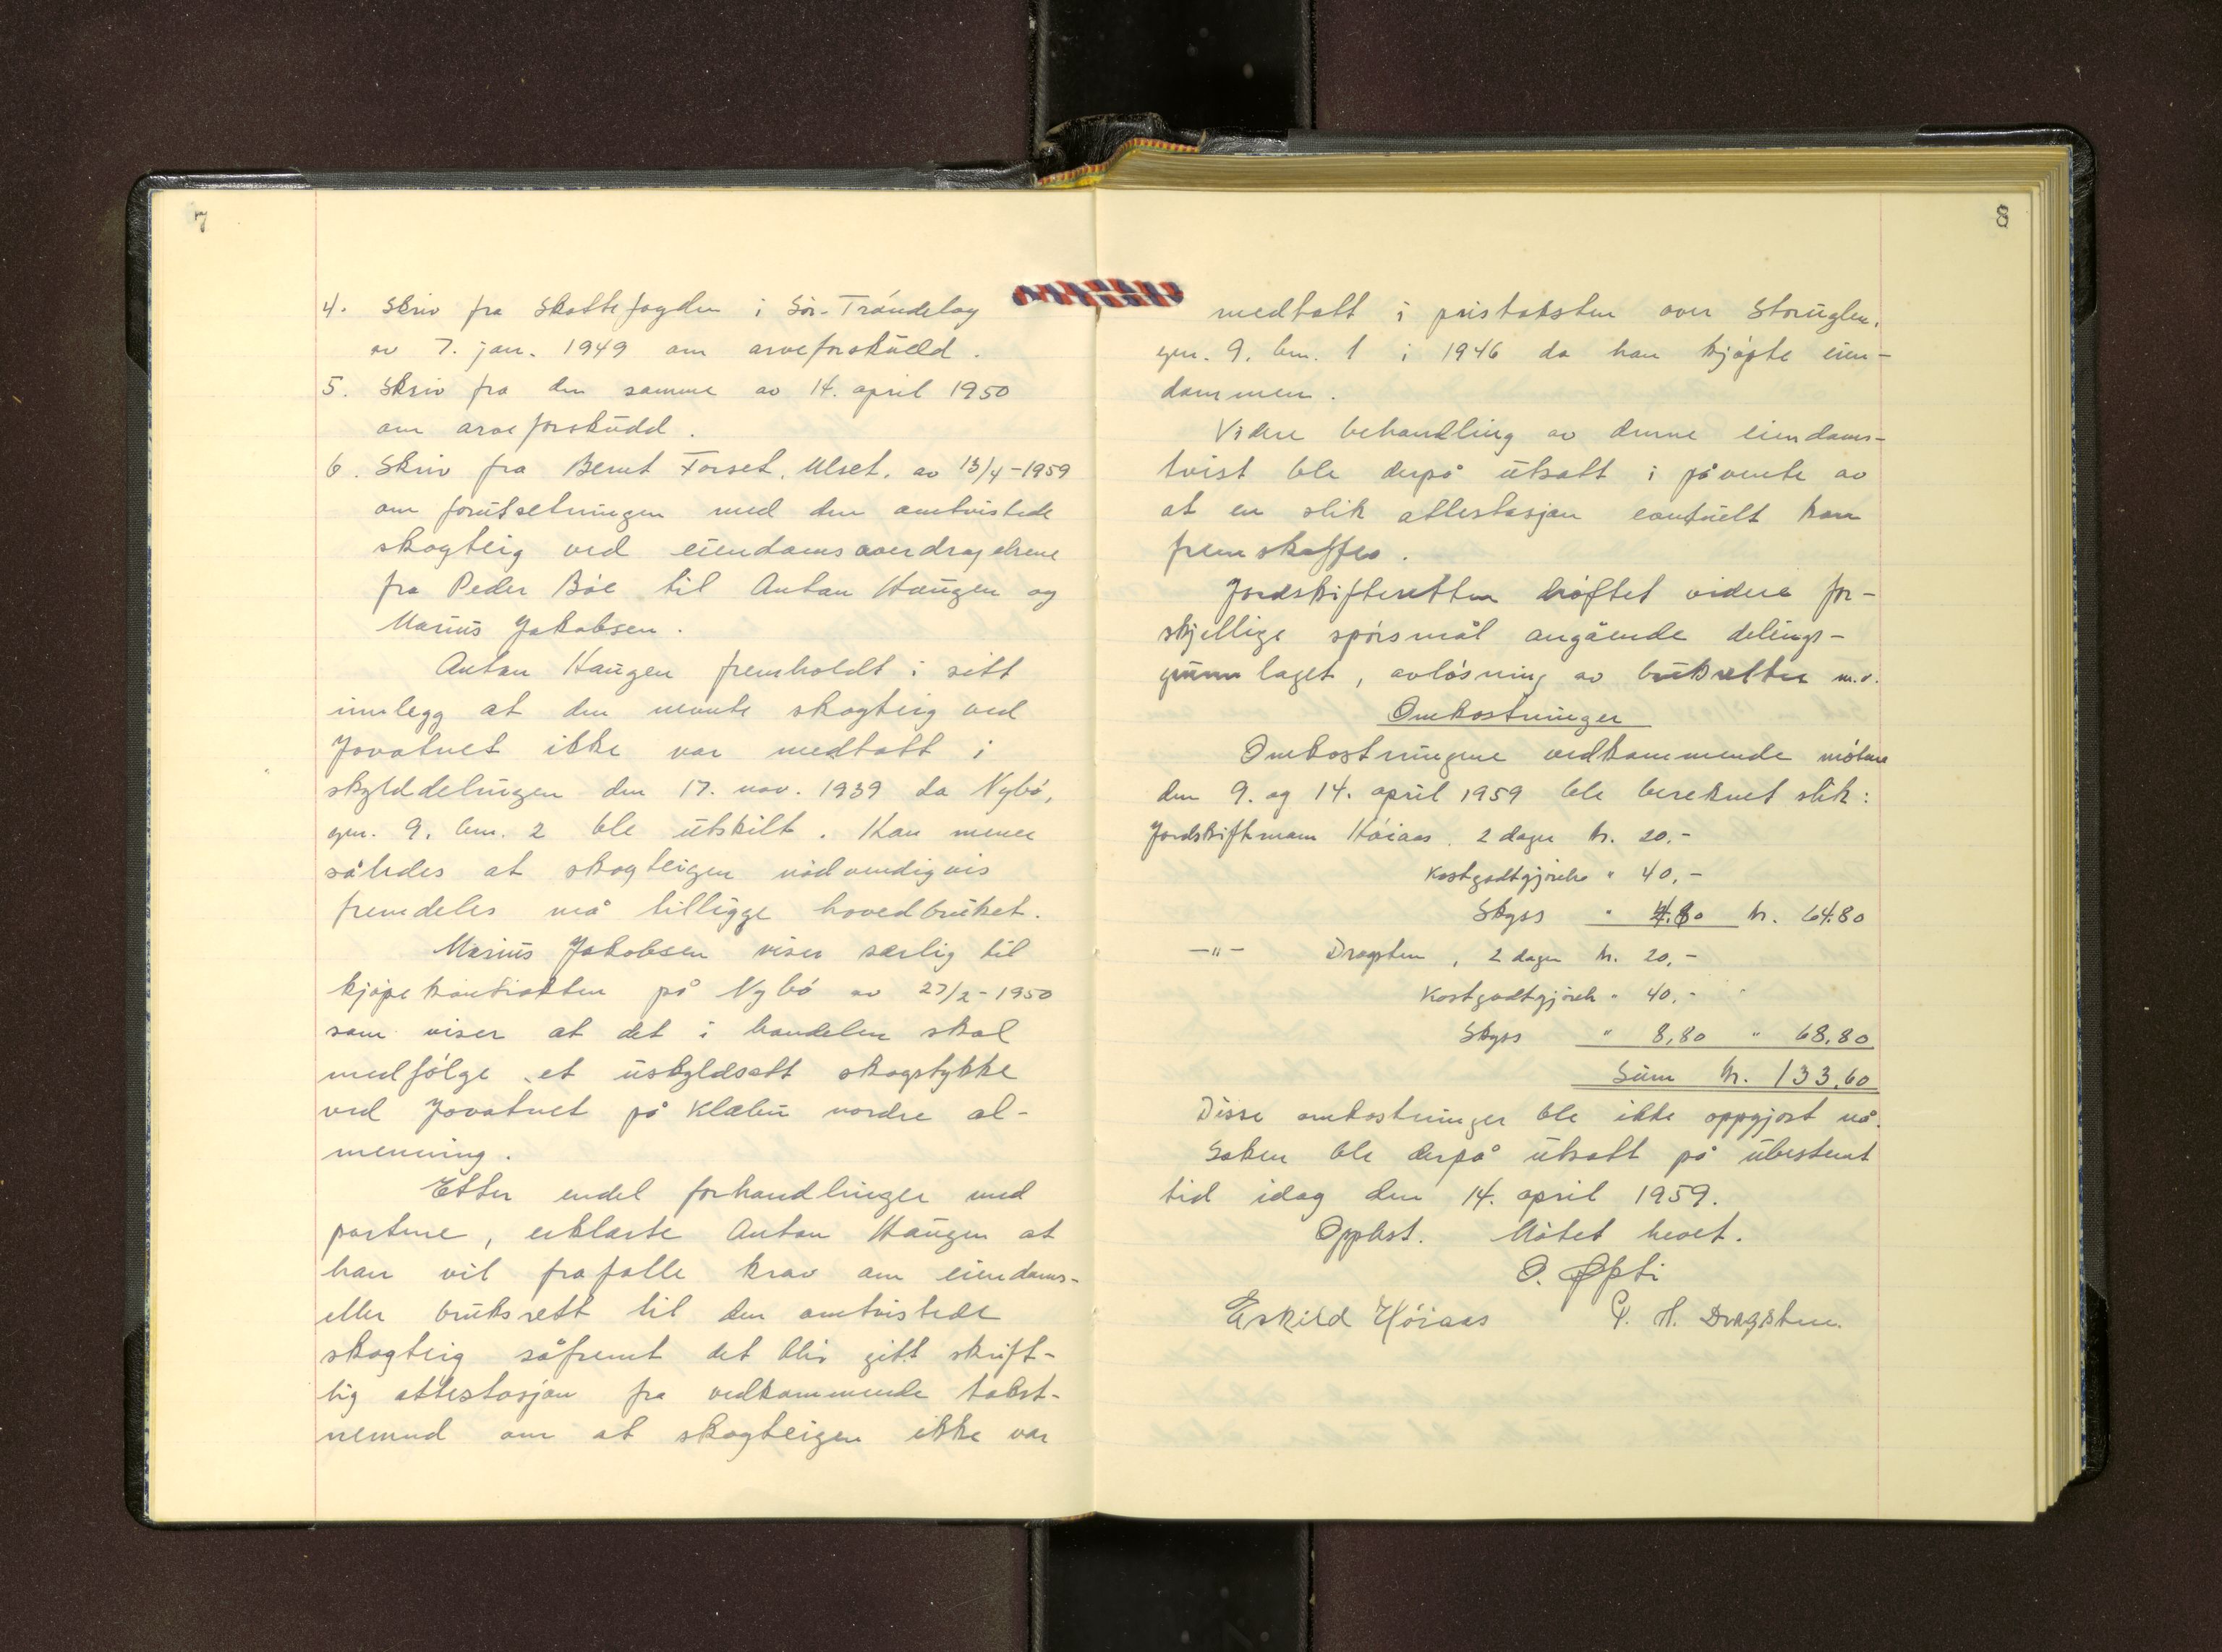 7
4. Skriv fra Skattefogden i Sør-Trøndelag
av 7. jan. 1949 om arveforskudd.
5. Skriv fra den samme av 14. april 1950
om arveforskudd.
6. Skriv fra Bernt Forset, Ulset, av 13/4-1959
om forutsetningen med den omtvistede
skogteig ved eiendomsoverdragelsene
fra Peder Bøe til Anton Haugen og
Marius Jakobsen.
Anton Haugen fremholdt i sitt
innlegg at den nevnte skogteig ved
Jovatnet ikke var medtatt i
skylddelingen den 17. nov. 1939 da Nybø,
gnr. 9, bnr. 2 ble utskilt. Han mener
således at skogteigen nødvendigvis
fremdeles må tilligge hovedbruket.
Marius Jakobsen viser særlig til
kjøpekontrakten på Nybø av 27/2-1950
som viser at det i handelen skal
medfølge et uskyldsatt skogstykke
ved Jovatnet på Klæbu nordre al-
menning.
Etter endel forhandlinger med
partene, erklærte Anton Haugen at
han vil frafalle krav om eiendoms-
eller bruksrett til den omtvistede
skogteig såfremt det blir gitt skrift-
lig attestasjon fra vedkommende takst-
nemnd om at skogteigen ikke var
8
medtatt i pristaksten over Storuglen,
gnr. 9, bnr. 1 i 1946 da han kjøpte eien-
dommen.
Videre behandling av denne eiendoms-
tvist ble derpå utsatt i påvente av
at en slik attestasjon eventuelt kan
fremskaffes.
Jordskifteretten drøftet videre for-
skjellige spørsmål angående delings-
grunnlaget, avløsning av bruksretter m.v.
Omkostninger
Omkostningene vedkommende møtene
den 9. og 14. april 1959 ble bereknet slik:
Jordskiftemann Høiaas, 2 dager kr. 20,-
Kostgodtgjørelse " 40,-
Skyss " 4.80 kr. 64.80
-"- Dragsten, 2 dager kr. 20,-
Kostgodtgjørelse " 40,-
Skyss " 8,80 " 68,80
Sum kr. 133,60
Disse omkostninger ble ikke oppgjort nå.
Saken ble derpå utsatt på ubestemt
tid idag den 14. april 1959.
Opplest. Møtet hevet.
O.
Eskild Høiaas P. H. Dragsten.